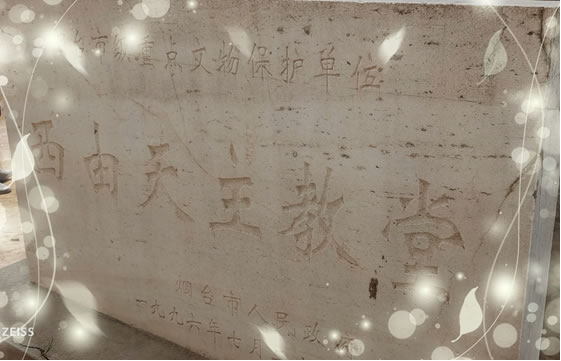 台市级重点文物保护单位
西由天主教堂
烟台市人民政府
一九九六年七月
ZEISS